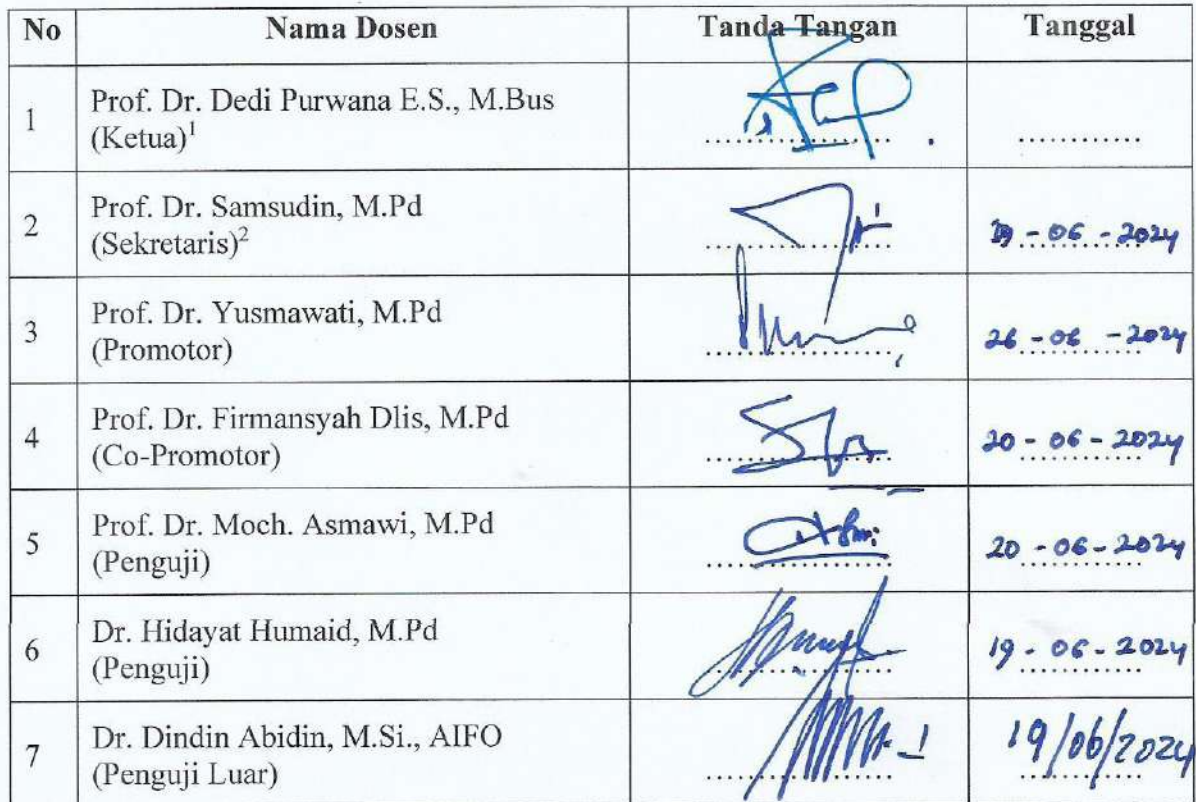 No Nama Dosen Tanda Tangan Tanggal
1 Prof. Dr. Dedi Purwana E.S., M.Bus
(Ketua)¹ .................. ............
2 Prof. Dr. Samsudin, M.Pd
(Sekretaris)² - 06 - 2024
3 Prof. Dr. Yusmawati, M.Pd
(Promotor) 26 - 06 - 2024
4 Prof. Dr. Firmansyah Dlis, M.Pd
(Co-Promotor) 20 - 06 - 2024
5 Prof. Dr. Moch. Asmawi, M.Pd
(Penguji) 20 - 06 - 2024
6 Dr. Hidayat Humaid, M.Pd
(Penguji) 19 - 06 - 2024
7 Dr. Dindin Abidin, M.Si., AIFO
(Penguji Luar) 19/06/2024